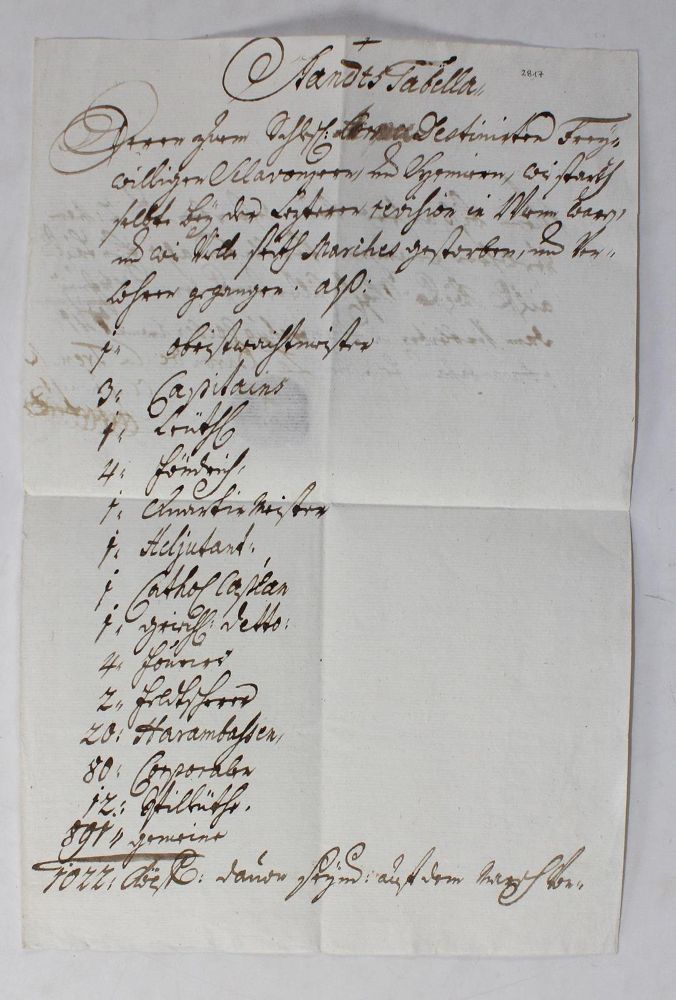 2817
Standts Tabella,
Deren zum Schles: Armee Destinirten Frey„
willigen Sclavoniern, und Syrmiern, wie starckh
selbte bey der Lezteren revision in Wienn war,
und wie Ville seith Marches gestorben, und Ver„
lohren gegangen. alß:
1„ obristwachtmeister
3: Capitains
1: Leüth
4: fendrich,
1: Quartirmeister
1: Adjutant:
1 Cathol Caplan
1: griech: detto:
4: fouriers
2„ feldtscherer
20: Harambassen,
80: Corporalen
12: Spilleüthe.
891„ gemeine
1022: davon seynd: auf dem March Ver„